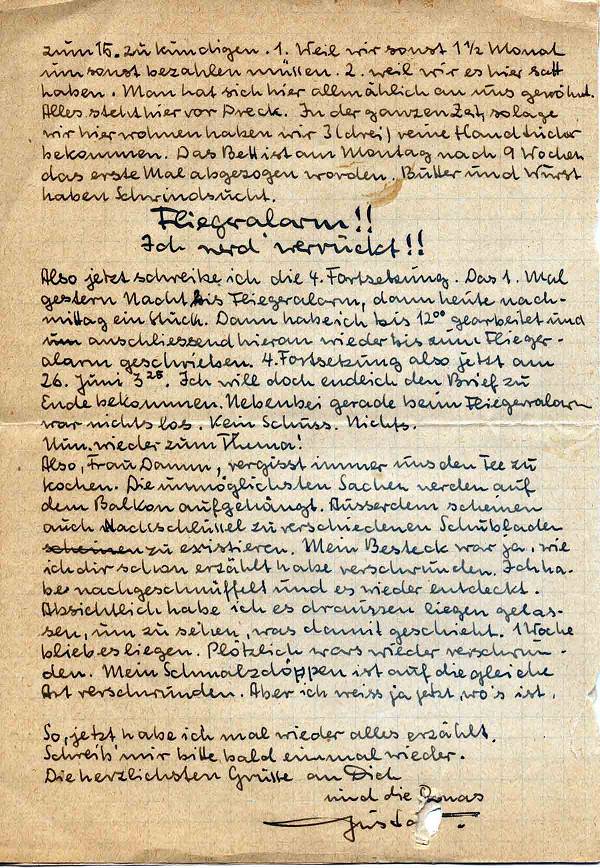 zum 15. zu kündigen. 1. Weil wir sonst 1½ Monat
umsonst bezahlen müssen. 2. weil wir es hier satt
haben. Man hat sich hier allmählich an uns gewöhnt.
Alles steht hier vor Dreck. In der ganzen Zeit, solage
wir hier wohnen haben wir 3 (drei) reine Handtücher
bekommen. Das Bett ist am Montag nach 9 Wochen
das erste Mal abgezogen worden. Butter und Wurst
haben Schwindsucht.
Fliegeralarm!!
Ich werd' verrückt!!
Also jetzt schreibe ich die 4. Fortsetzung. Das 1. Mal
gestern Nacht bis Fliegeralarm, dann heute nach-
mittag ein Stück. Dann habe ich bis 12⁰⁰ gearbeitet und
um anschliessend hieran wieder bis zum Flieger-
alarm geschrieben. 4. Fortsetzung also jetzt am
26. Juni 3²⁵. Ich will doch endlich den Brief zu
Ende bekommen. Nebenbei gerade beim Fliegeralarm
war nichts los. Kein Schuss. Nichts.
Nun wieder zum Thema!
Also, Frau Damm, vergisst immer uns den Tee zu
kochen. Die unmöglichsten Sachen werden auf
dem Balkon aufgehängt. Ausserdem scheinen
auch Nachschlüssel zu verschiedenen Schubladen
scheinen zu existieren. Mein Besteck war ja, wie
ich dir schon erzählt habe verschwunden. Ich ha-
be nachgeschnüffelt und es wieder entdeckt.
Absichtlich habe ich es draussen liegen gelas-
sen, um zu sehen, was damit geschieht. 1 Woche
blieb es liegen. Plötzlich wars wieder verschwun-
den. Mein Schmalzdöppen ist auf die gleiche
Art verschwunden. Aber ich weiss ja jetzt, wo's ist.
So, jetzt habe ich mal wieder alles erzählt.
Schreib' mir bitte bald einmal wieder.
Die herzlichsten Grüsse an Dich
und die